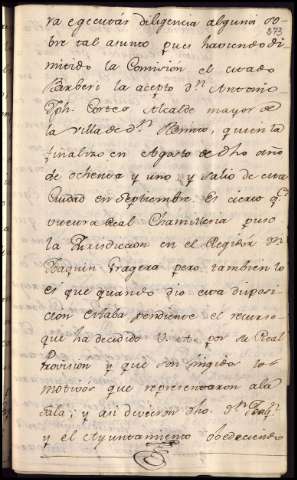 ra egecutar diligencia alguna so-
bre tal asunto pues haviendo di-
mitido la Comision el citado
Barberi la acepto Dn. Antonio
Jph. Cortes Alcalde mayor de
la Villa de Dn. Benito, quien la
finalizo en Agosto de dho año
de ochenta y uno y salio de esta
Ciudad en Septiembre. Es cierto qe.
vuestra Real Chanzilleria puso
la Jurisdiccion en el Regidor Dn.
Joaquin Fragera pero tambien lo
es que quando dio esta disposi-
cion estaba pendiente el recurso
que ha decidido V. A. por su Real
Provision y que son los
motivos que representaron a la
Sala; y asi devieron dho. Dn. Joaqn.
y el Ayuntamiento obedeciendo
573